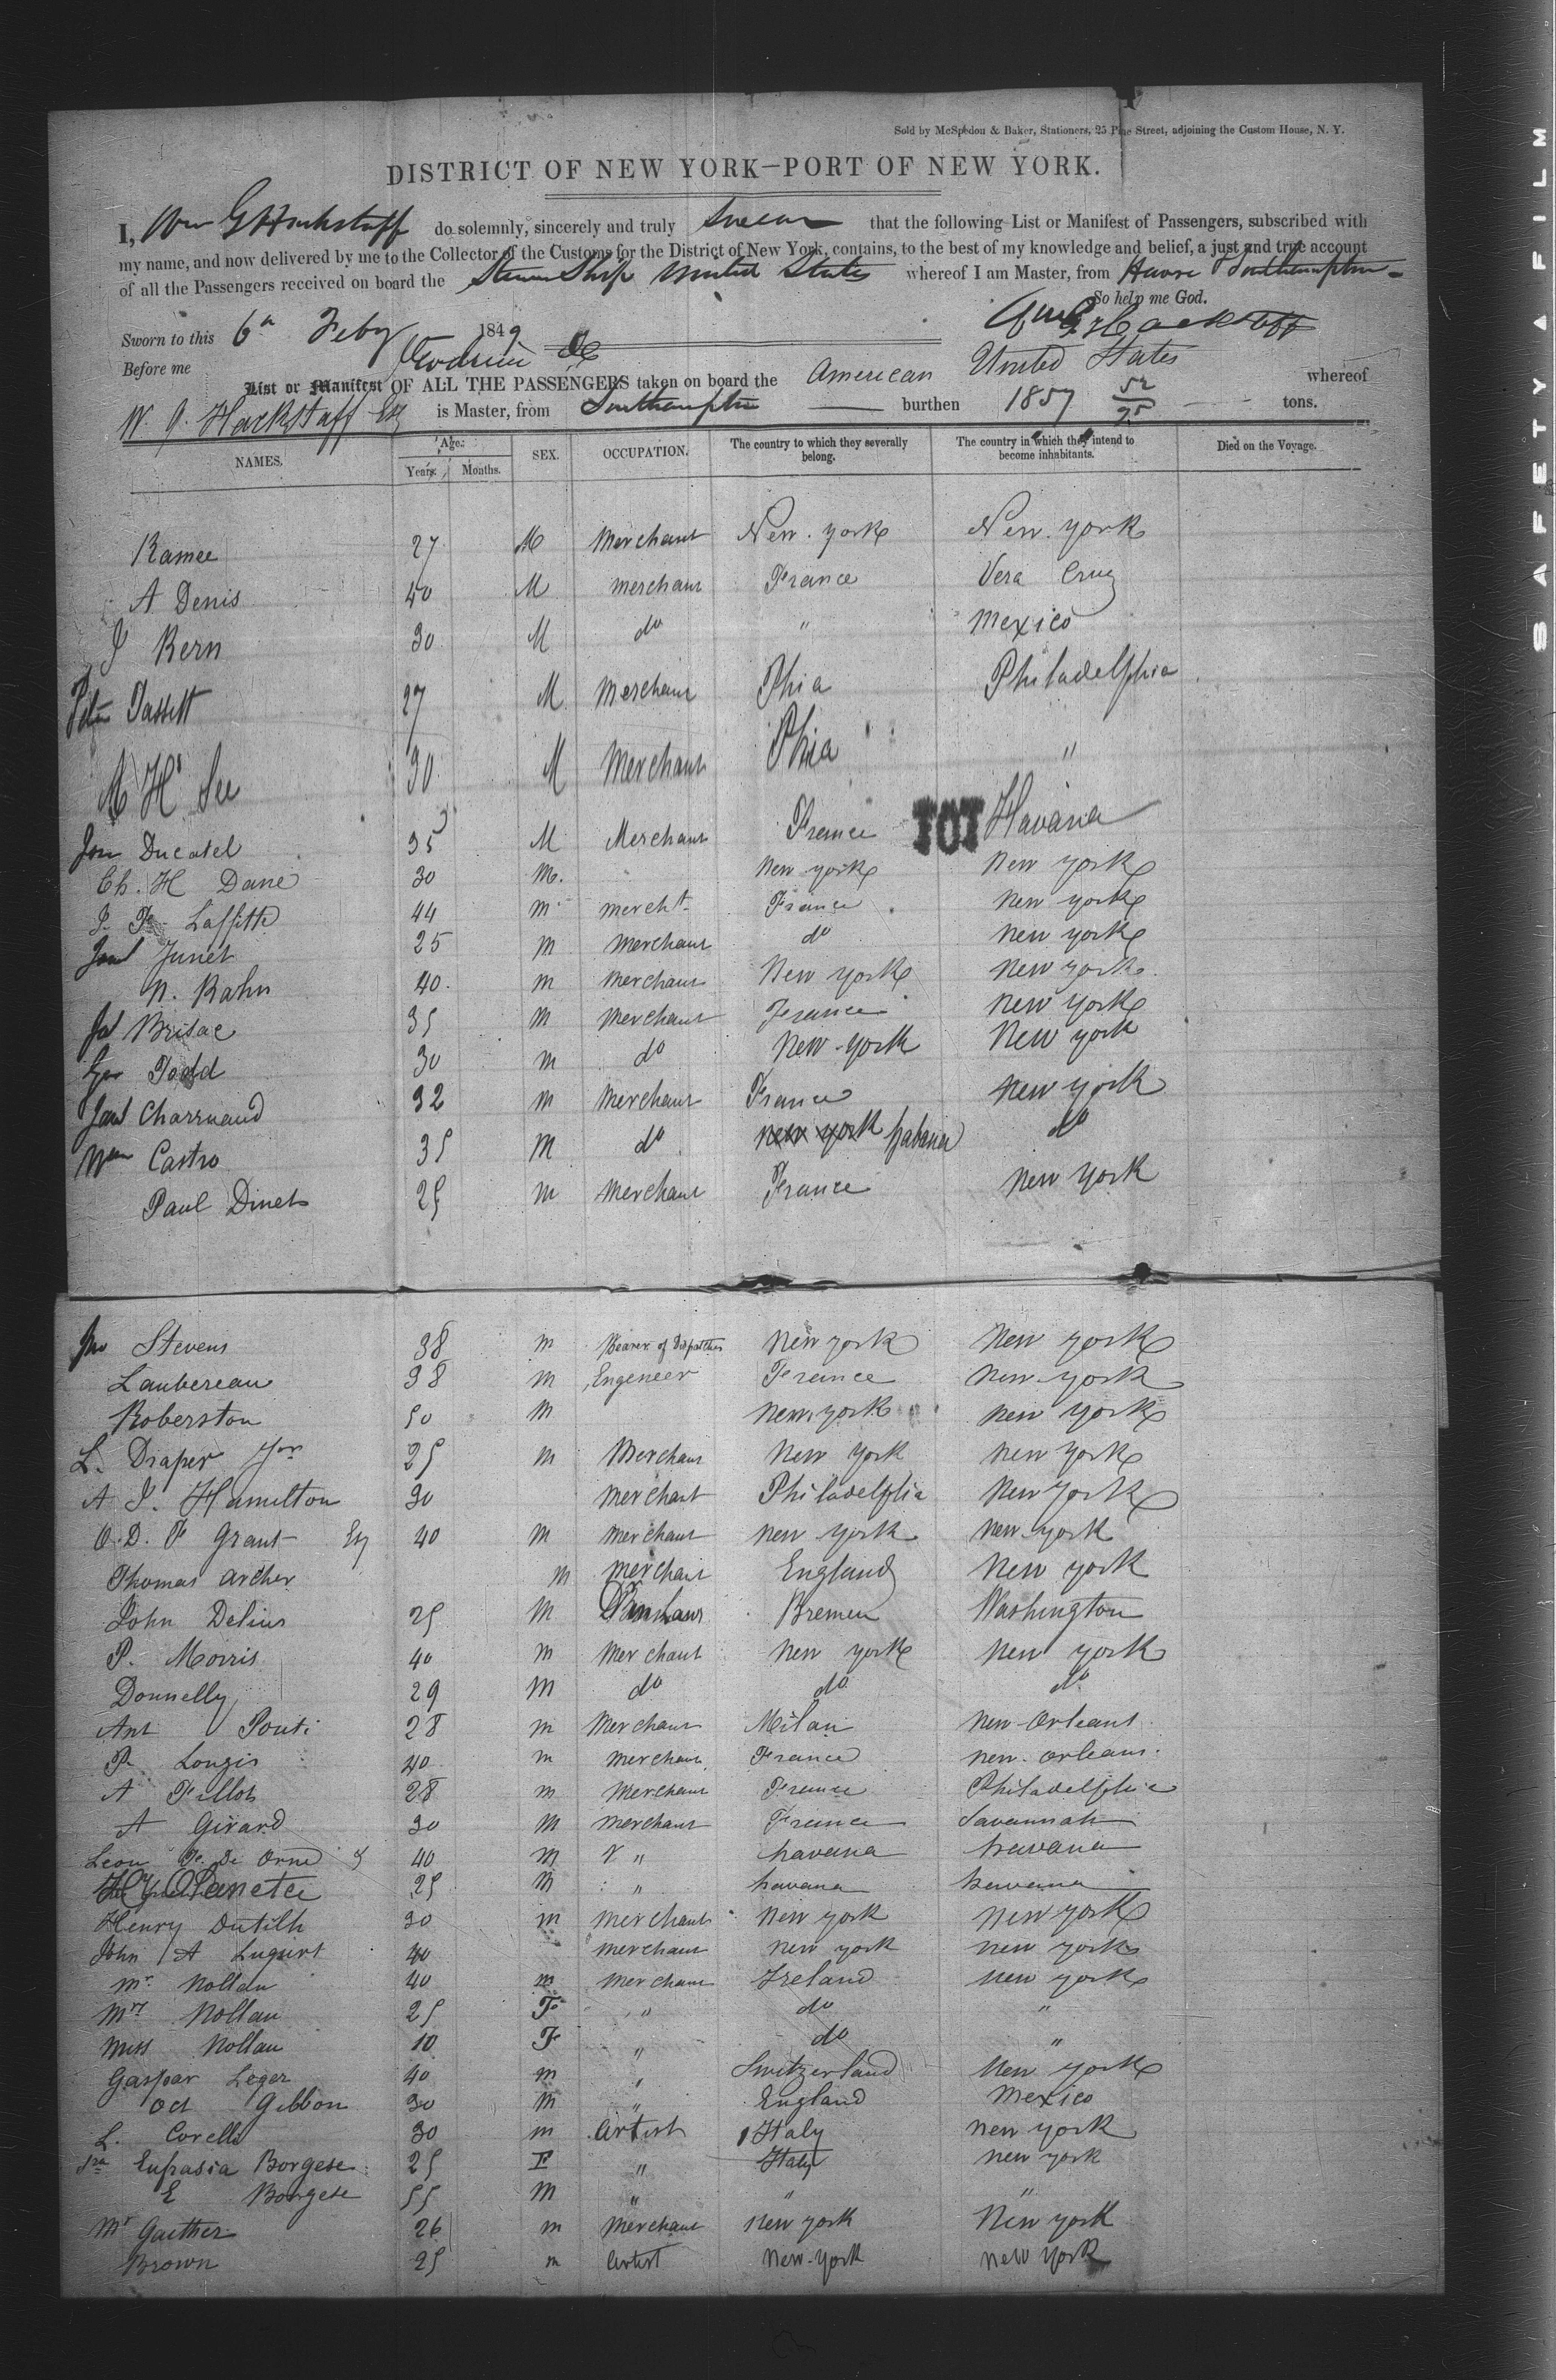 Sold by McSpedon & Baker, Stationers, 25 Pine Street, adjoining the Custom House, N. Y.
DISTRICT OF NEW YORK—PORT OF NEW YORK.
I, Wm G Hackstaff do solemnly, sincerely and truly swear that the following List or Manifest of Passengers, subscribed with
my name, and now delivered by me to the Collector of the Customs for the District of New York, contains, to the best of my knowledge and belief, a just and true account
of all the Passengers received on board the Steam Ship United States whereof I am Master, from Havre & Southampton
So help me God.
Sworn to this 6th Feby 1849 Wm G Hackstaff
Before me
List or Manifest OF ALL THE PASSENGERS taken on board the American United States whereof
W. G. Hackstaff Esq is Master, from Southampton burthen 1857 52/95 tons.
NAMES. Age. Years. Months. SEX. OCCUPATION. The country to which they severally belong. The country in which they intend to become inhabitants. Died on the Voyage.
Ramee 27 M Merchant New. york New. york
A Denis 40 M merchant France Vera Cruz
J Kern 30 M do " Mexico
Peter Tassett 27 M Merchant Phia Philadelphia
A H See 30 M Merchant Phia "
Jon Ducatel 35 M Merchant France Havana
101
Ch. H Dane 30 M. New york New york
J. F. Laffitte 44 m mercht France New york
Junet 25 m Merchant do new york
N. Kahn 40. m Merchant New york New york.
Brisac 35 m Merchant France New york
Geo Todd 30 m do New-york New york
Charruaud 32 m Merchant France New york
Wm Castro 35 M do new york habana do
Paul Dinets 25 m Merchant France New york
Jno Stevens 38 m Bearer of Dispatches New york New york
Laubereau 38 m Engeneer France New-york
Roberston 50 m New york New york
L. Draper Jnr 25 m Merchant New york New york
A J. Hamilton 30 Merchant Philadelphia New york
O. D. F Grant Esq 40 m Merchant new york New york
Thomas Archer m merchant England New york
John Delius 25 M Bremen Washington
P. Morris 40 m Merchant New york New york
Donnelly 29 M do do do
Ant Ponti 28 m Merchant Milan New Orleans
P. Longis 40 m merchant France new. orleans.
A Fillot 28 m Merchant France Philadelphia
A Girard 30 M Merchant France Savannah
Leon De Orne 40 m " havana havana
25 m " havana havana
Henry Dutilh 30 m Merchant New york New york
John A Luqurt 40 merchant New york New york
Mr. Nollan 40 m Merchant Ireland New york
Mrs Nollan 25 F " do "
Miss Nollan 10 F " do "
Gaspar Leger 40 m " Switzerland New york
Oct Gibbon 30 m " England Mexico
L. Corelli 30 m Artist Italy New york
Sra Eufrasia Borgese 25 F " Italy New york
E Borgese 55 M " " "
Mr Gaither 26 m Merchant New york New york
Brown 25 m Artist New-york New york
SAFETY FILM